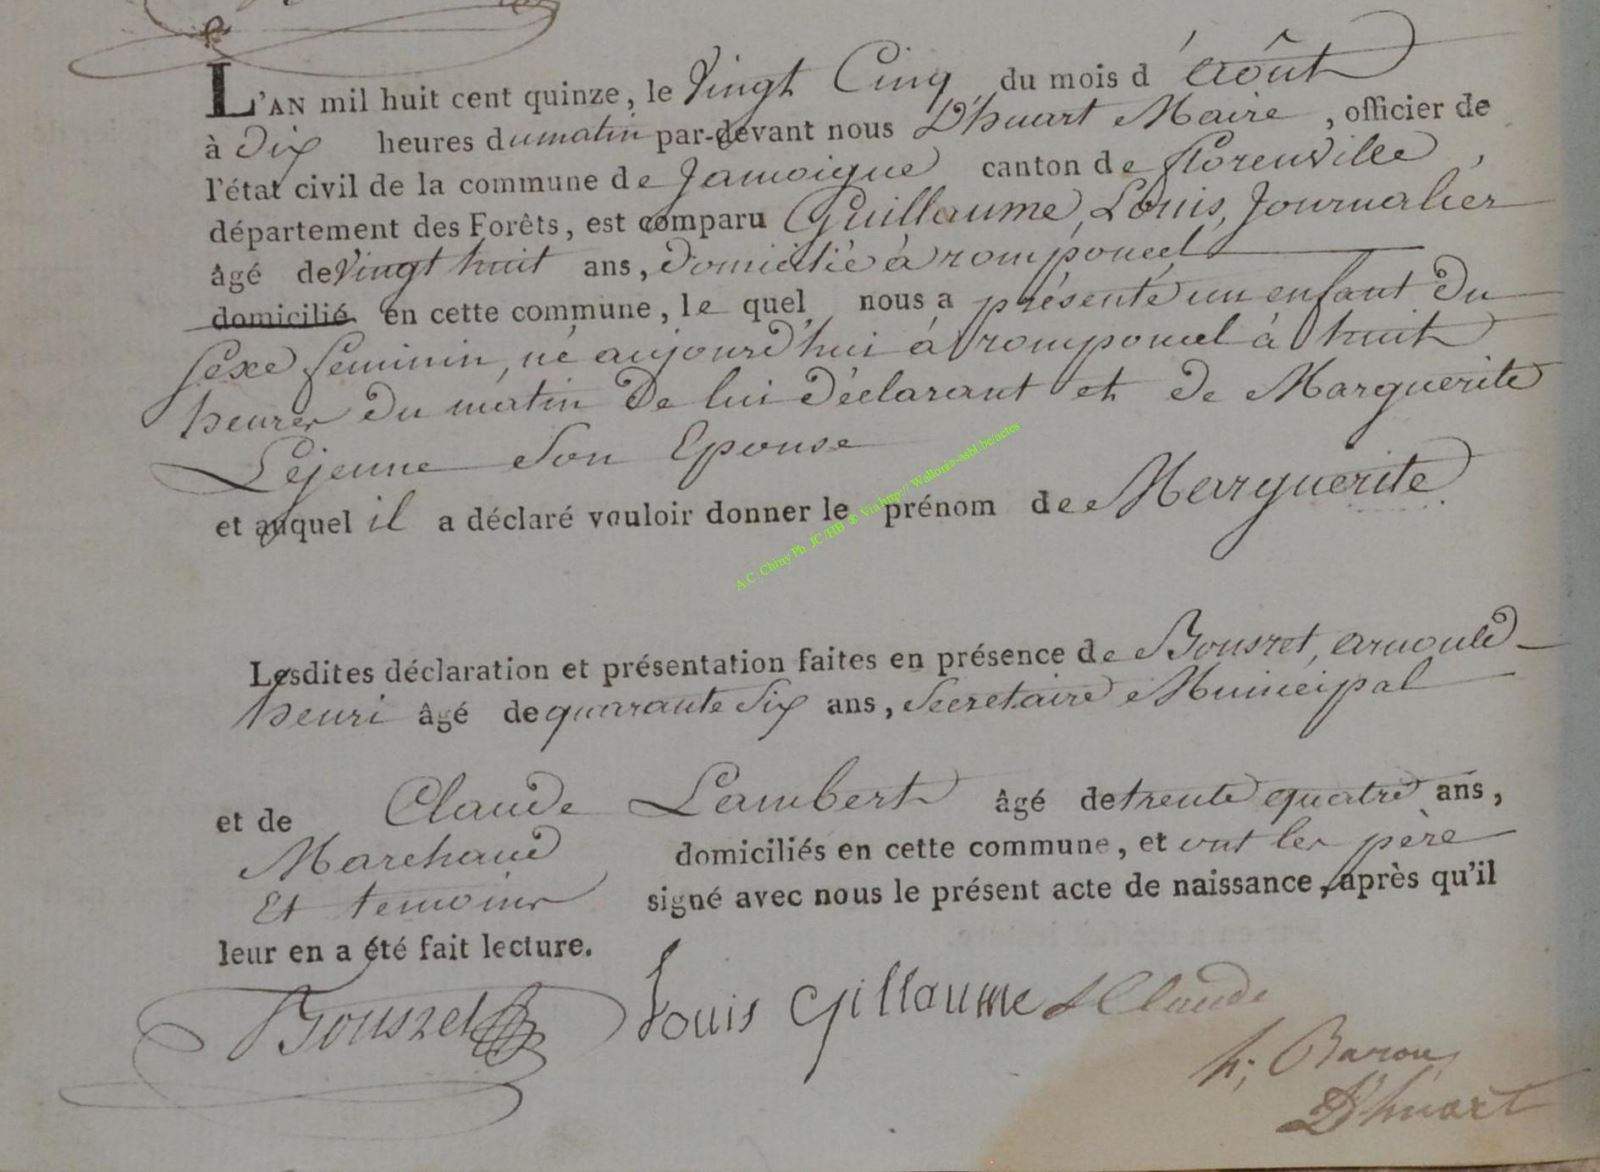 L'AN mil huit cent quinze, le Vingt Cinq du mois d'Août
à Dix heures du matin par-devant nous D'huart Maire, officier de
l'état civil de la commune de Jamoigne canton de florenville,
département des Forêts, est comparu Guillaume, Louis, Journalier
âgé de Vingt huit ans, Domicilié à romponcel
domicilié en cette commune, le quel nous a présenté un enfant Du
sexe feminin, né aujourd'hui à romponcel à huit
heures Du matin De lui Déclarant et De Marguerite
Lejeune Son Epouse
et auquel il a déclaré vouloir donner le prénom de Marguerite
A.C. Chiny Ph. JC/HB @ Via http:// Wallonia-asbl.be/actes
Lesdites déclaration et présentation faites en présence de Bouszet, arnould
henri âgé de quarante Six ans, Secretaire Municipal
et de Claude Lambert âgé de trente quatre ans,
Marchand domiciliés en cette commune, et ont les père
Et temoins signé avec nous le présent acte de naissance, après qu'il
leur en a été fait lecture.
Bouszet Louis Gillaume L Claude
h; Baron
D'huart